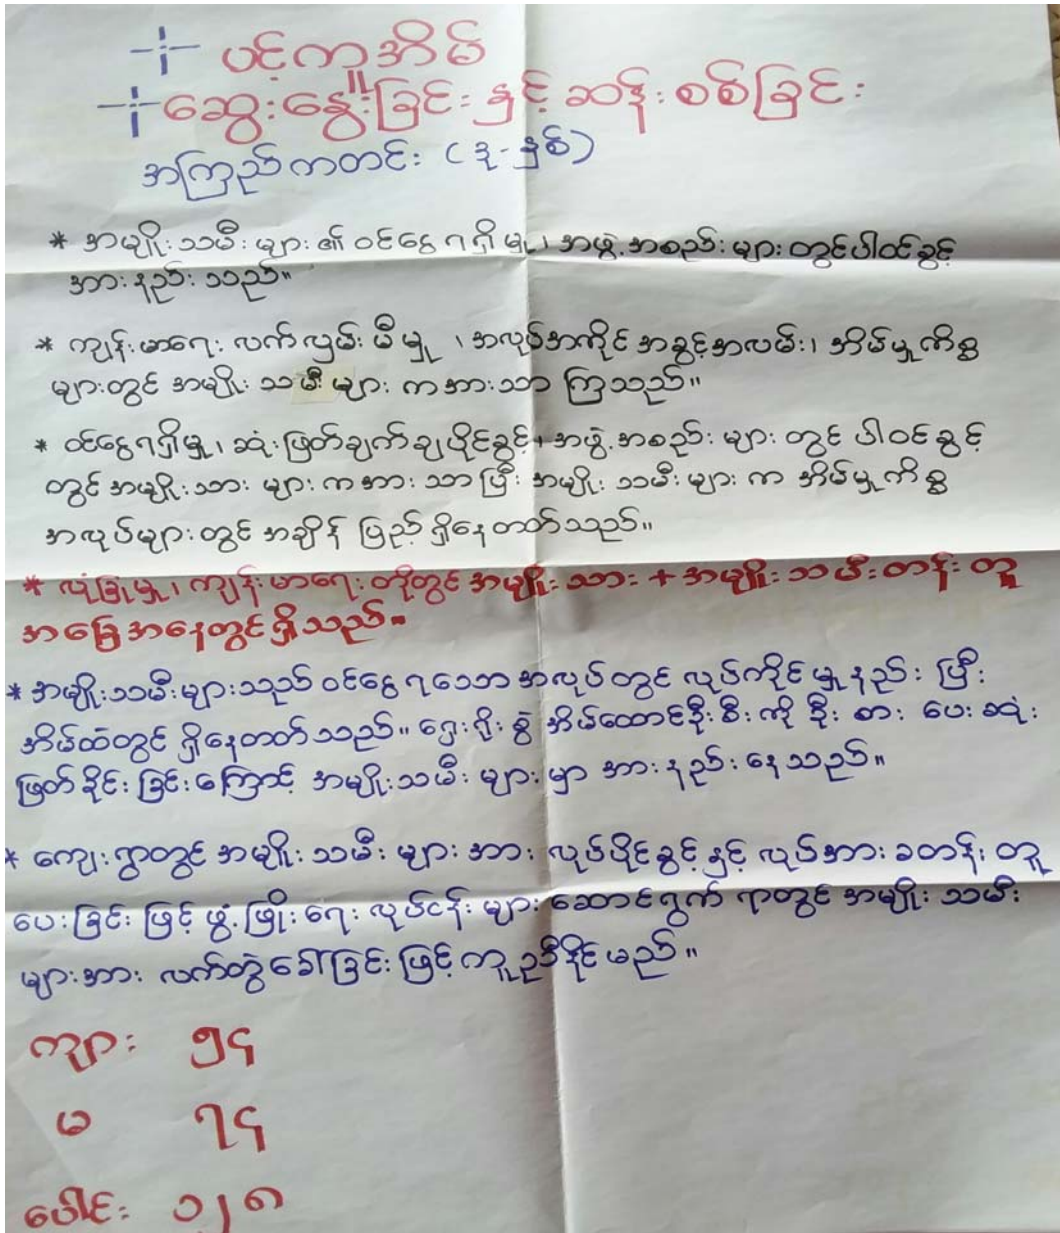 ပင့်ကူအိမ်
ဆွေးနွေးခြင်းနှင့် ဆန်းစစ်ခြင်း
အကြည်ကတင်း (ဒု-နှစ်)
* အမျိုးသမီးများ၏ ဝင်ငွေရရှိမှု၊ အဖွဲ့အစည်းများတွင်ပါဝင်ခွင့်
အားနည်းသည်။
* ကျန်းမာရေး လက်လှမ်းမီမှု ၊ အလုပ်အကိုင် အခွင့်အလမ်း၊ အိမ်မှုကိစ္စ
များတွင် အမျိုးသမီးများ ကအားသာ ကြသည်။
* ဝင်ငွေရရှိမှု၊ ဆုံးဖြတ်ချက်ချပိုင်ခွင့်၊ အဖွဲ့အစည်းများ တွင် ပါဝင်ခွင့်
တွင် အမျိုးသားများ ကအားသာပြီး အမျိုးသမီးများ က အိမ်မှုကိစ္စ
အလုပ်များတွင် အချိန် ပြည့်ရှိနေတတ်သည်။
* လုံခြုံမှု၊ ကျန်းမာရေး တို့တွင် အမျိုးသား + အမျိုးသမီးတန်းတူ
အခြေအနေတွင်ရှိသည်။
* အမျိုးသမီးများသည် ဝင်ငွေရသော အလုပ်တွင် လုပ်ကိုင်မှုနည်းပြီး
အိမ်ထဲတွင် ရှိနေတတ်သည်။ ရှေးရိုးစွဲ အိမ်ထောင်ဦးစီးကို ဦးစားပေးဆုံး
ဖြတ်ခိုင်းခြင်းကြောင့် အမျိုးသမီးများမှာ အားနည်းနေသည်။
* ကျေးရွာတွင် အမျိုးသမီးများအား လုပ်ပိုင်ခွင့်နှင့် လုပ်အားခတန်းတူ
ပေးခြင်းဖြင့် ဖွံ့ဖြိုးရေး လုပ်ငန်းများ ဆောင်ရွက် ရာတွင် အမျိုးသမီး
များအား လက်တွဲခေါ်ခြင်းဖြင့် ကူညီနိုင်မည်။
ကျား ၅၄
မ ၇၄
ပေါင်း ၁၂၈